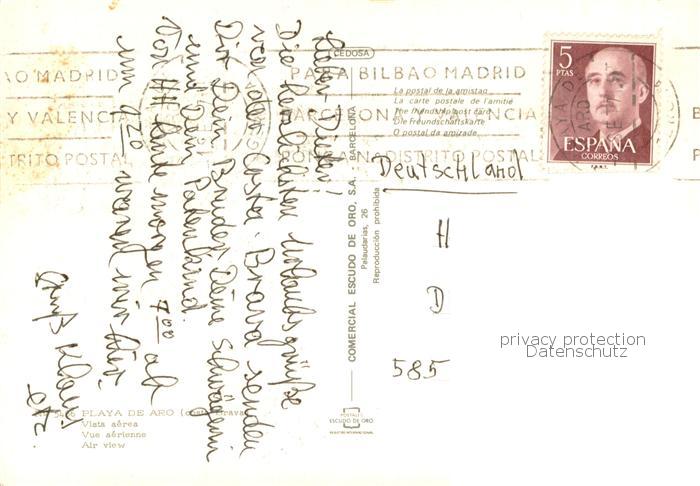 Die herzlichsten Urlaubsgrüße
von der Costa Brava senden
Dir Dein Bruder, Deine Schwägerin
und Dein Patenkind.
ab
waren wir hier.
Gruß Klaus
CEDOSA
La postal de la amistad
La carte postale de l'amitié
The friendship post card
Die Freundschaftskarte
O postal da amizade
PARA BILBAO MADRID
BARCELONA VALENCIA
PONGAN DISTRITO POSTAL
AO MADRID
Y VALENCIA
TRITO POSTAL
5
PTAS
ESPAÑA
CORREOS
F.N.M.T.
Deutschland
H
D
585
COMERCIAL ESCUDO DE ORO, S.A. - BARCELONA
Palaudarias, 26
Reproducción prohibida
privacy protection
Datenschutz
PLAYA DE ARO (Costa Brava)
Vista aérea
Vue aérienne
Air view
POSTALES
ESCUDO DE ORO